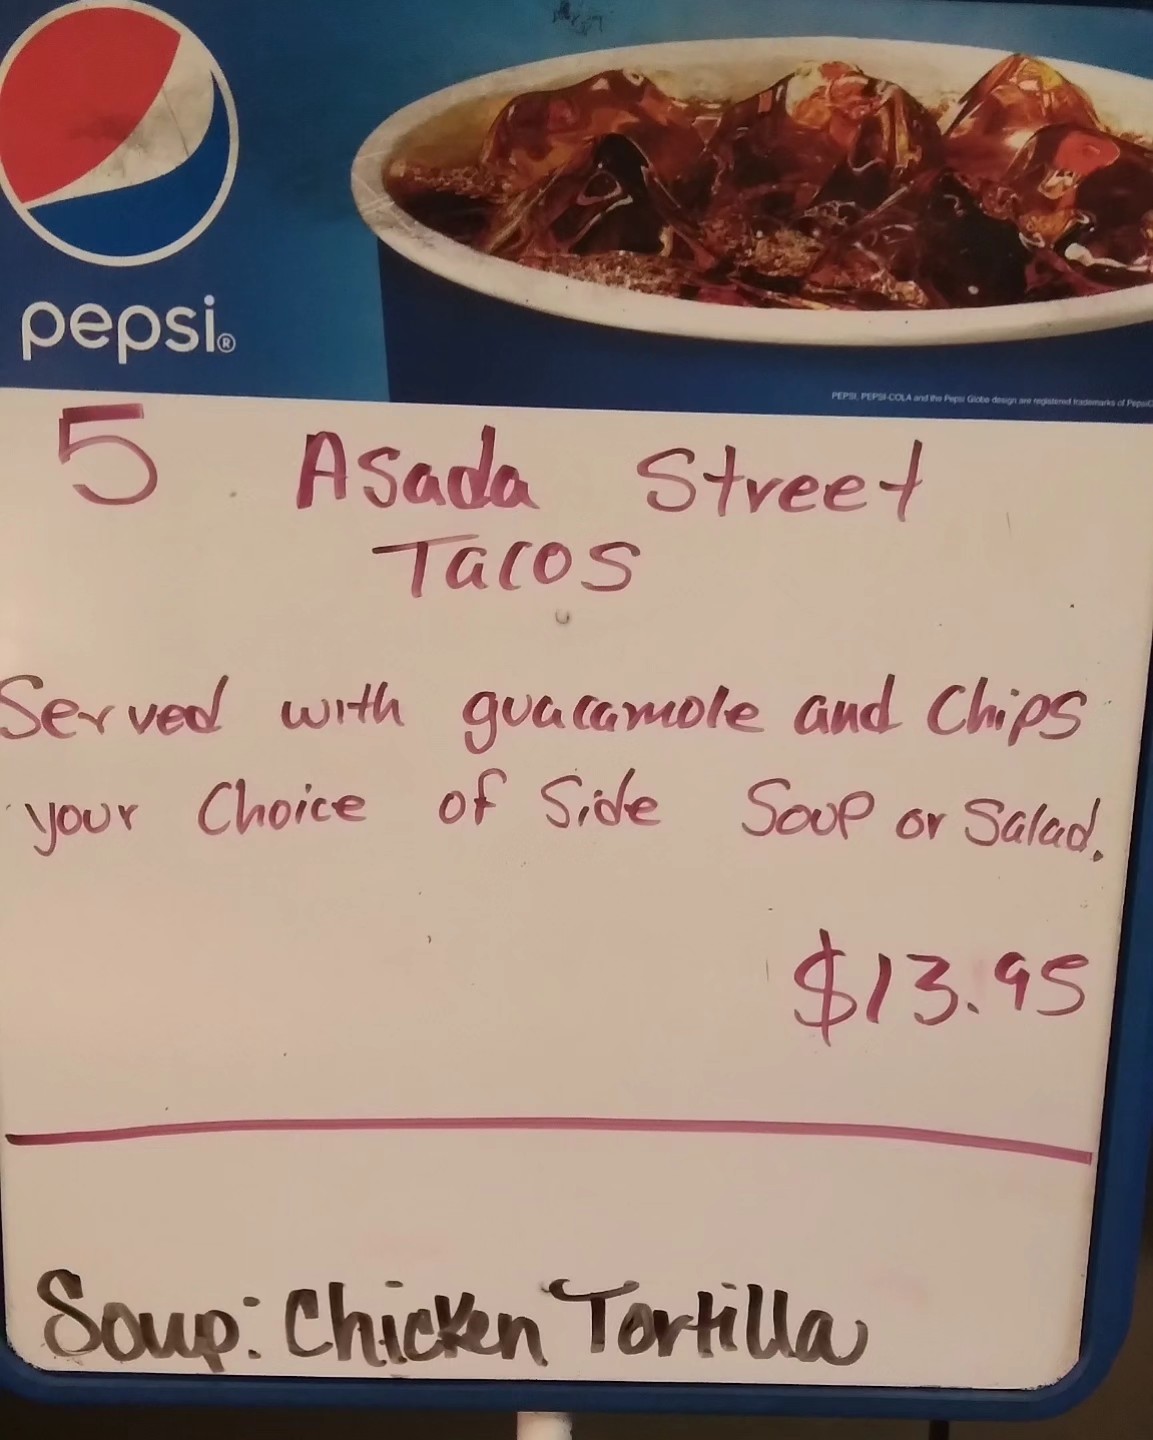 pepsi®
PEPSI, PEPSI-COLA and the Pepsi Globe design are registered trademarks of PepsiC
5 Asada Street
Tacos
Served with guacamole and Chips
your Choice of Side Soup or Salad.
$13.95
Soup: Chicken Tortilla